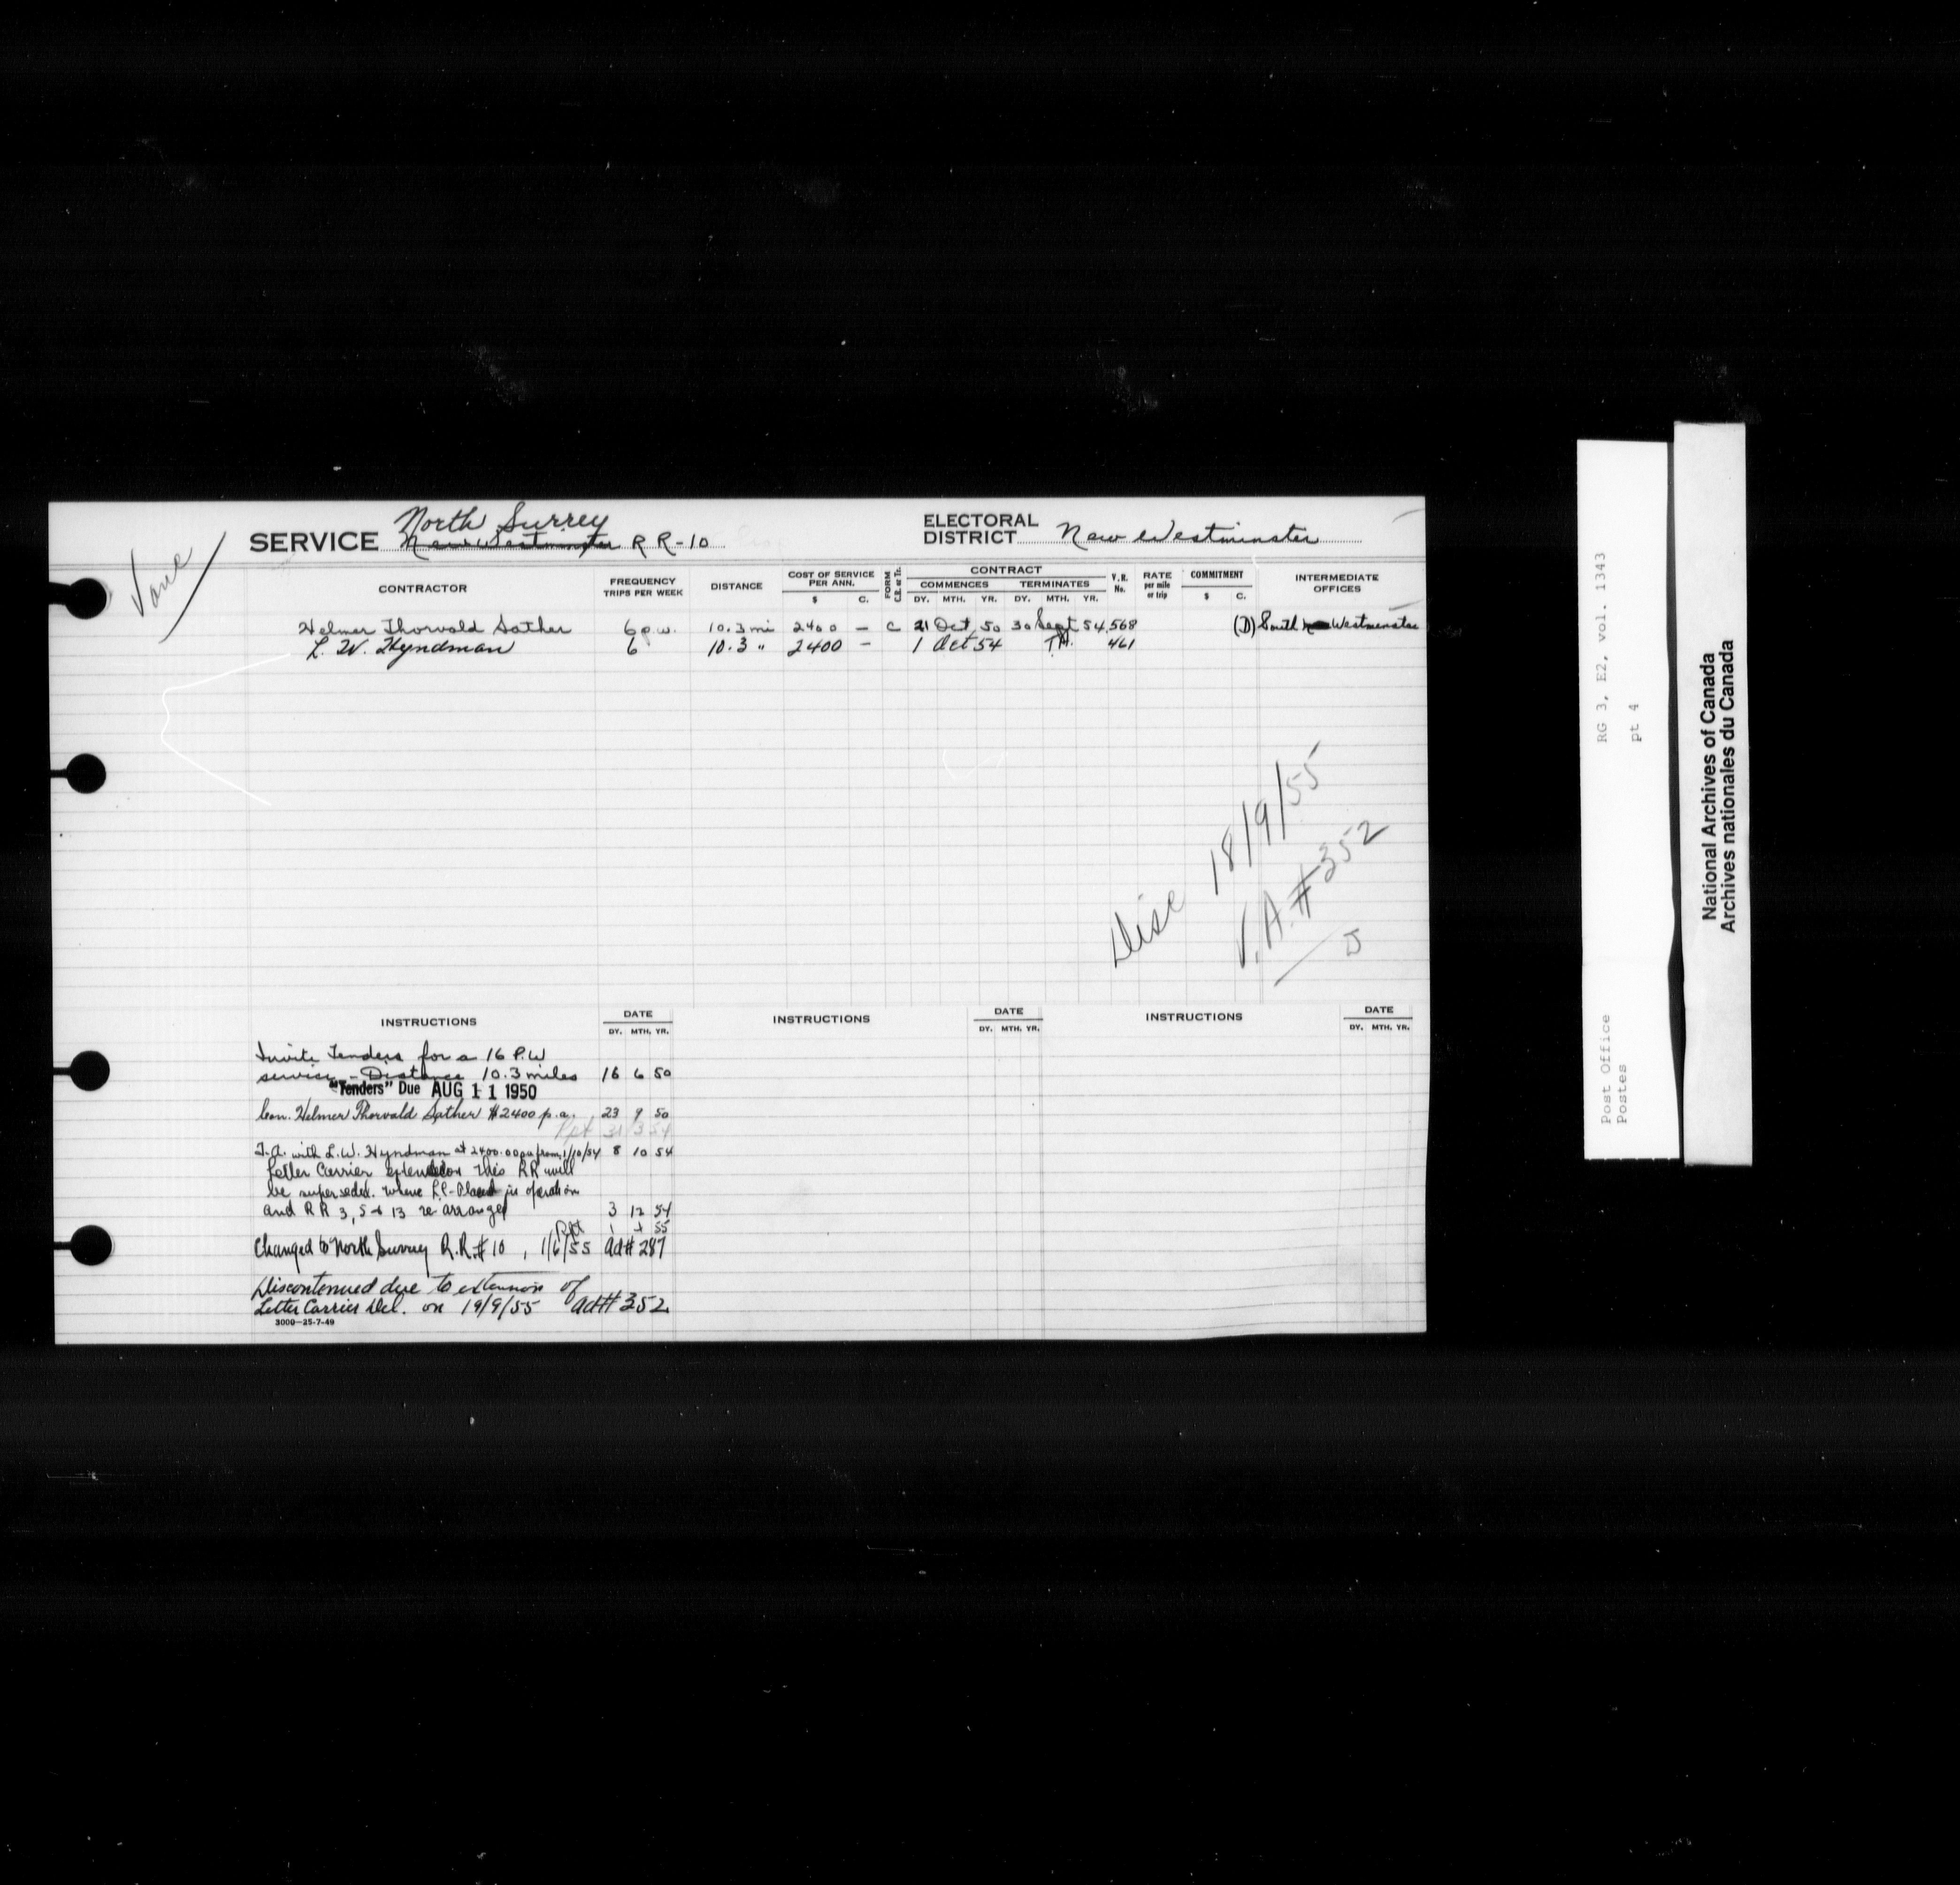 Vanc
North Surrey
SERVICE New Westminster R R-10
ELECTORAL DISTRICT New Westminster
CONTRACTOR FREQUENCY TRIPS PER WEEK DISTANCE COST OF SERVICE PER ANN. $ C. FORM C.R. or Tr. CONTRACT COMMENCES DY. MTH. YR. TERMINATES DY. MTH. YR. V.R. No. RATE per mile or trip COMMITMENT $ C. INTERMEDIATE OFFICES
Helmer Thorvald Sather 6 p.w. 10.3 mi 2400 — C 21 Oct 50 30 Sept 54 568 (D) South Westminster
L. W. Hyndman 6 10.3 " 2400 — 1 Oct 54 T.A. 461
Disc 18/9/55
V.A. # 352
J
INSTRUCTIONS DATE DY. MTH. YR. INSTRUCTIONS DATE DY. MTH. YR. INSTRUCTIONS DATE DY. MTH. YR.
Invite Tenders for a 16 P.W
service - Distance 10.3 miles 16 6 50
"Tenders" Due AUG 11 1950
Con. Helmer Thorvald Sather $2400 p.a. 23 9 50
Rpt 31 3 54
T.A. with L.W. Hyndman at 2400.00 pa from 1/10/54 8 10 54
Letter Carrier extension this RR will
be superseded. where L.C. Placed in operation
and RR 3, 5 & 13 re arranged 3 12 54
Rpt 1 55
Changed to North Surrey R.R.# 10, 1/6/55 Ad# 287
Discontinued due to extension of
Letter Carrier Del. on 19/9/55 Ad# 352
3000—25-7-49
RG 3, E2, vol. 1343
pt 4
Post Office
Postes
National Archives of Canada
Archives nationales du Canada